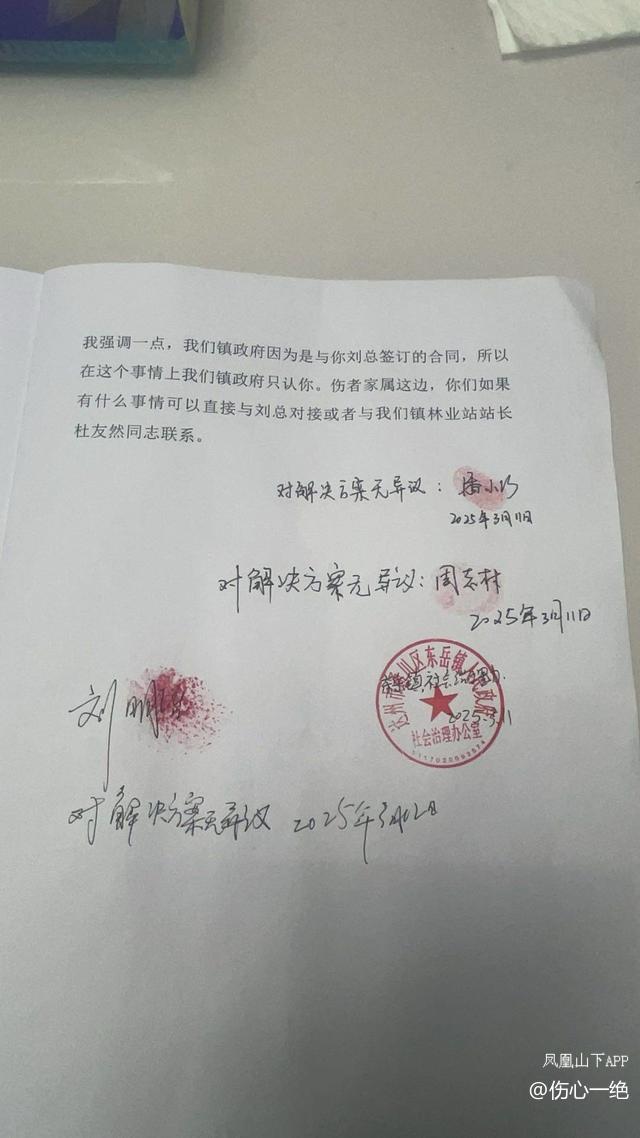 我强调一点，我们镇政府因为是与你刘总签订的合同，所以
在这个事情上我们镇政府只认你。伤者家属这边，你们如果
有什么事情可以直接与刘总对接或者与我们镇林业站站长
杜友然同志联系。
对解决方案无异议：潘小巧
2025年3月11日
对解决方案无异议：周志林
2025年3月11日
达州市达川区东岳镇人民政府
东岳镇社会治理办.
2025.3.11
社会治理办公室
刘明
对解决方案无异议 2025年3月12日
凤凰山下APP
@伤心一绝